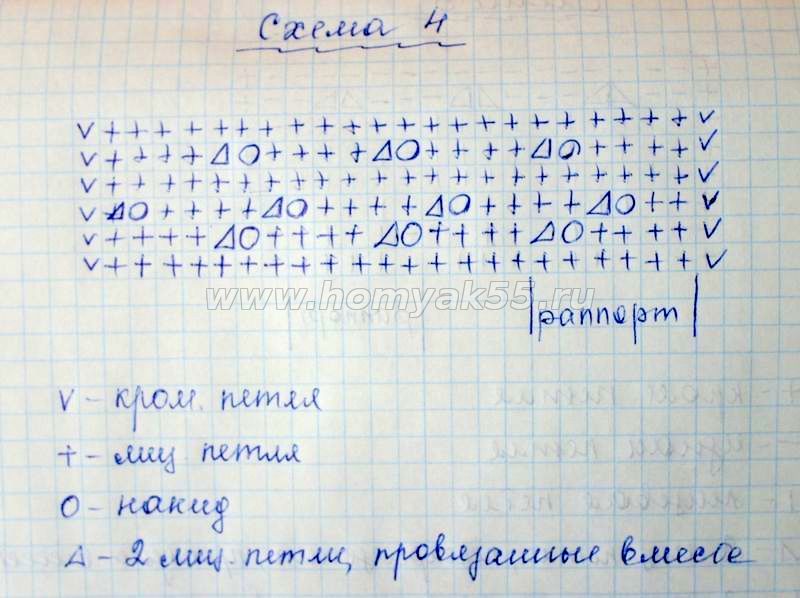 Схема 4
V + + + + + + + + + + + + + + + + + + + + + + V
V + + + + Δ O + + + + Δ O + + + + Δ O + + + + V
V + + + + + + + + + + + + + + + + + + + + + + V
V Δ O + + + + Δ O + + + + Δ O + + + + Δ O + + V
V + + + + Δ O + + + + Δ O + + + + Δ O + + + + V
V + + + + + + + + + + + + + + + + + + + + + + V
www.homyak55.ru
раппорт
V - кром. петля
+ - лиц петля
O - накид
Δ - 2 лиц. петли, провязанные вместе